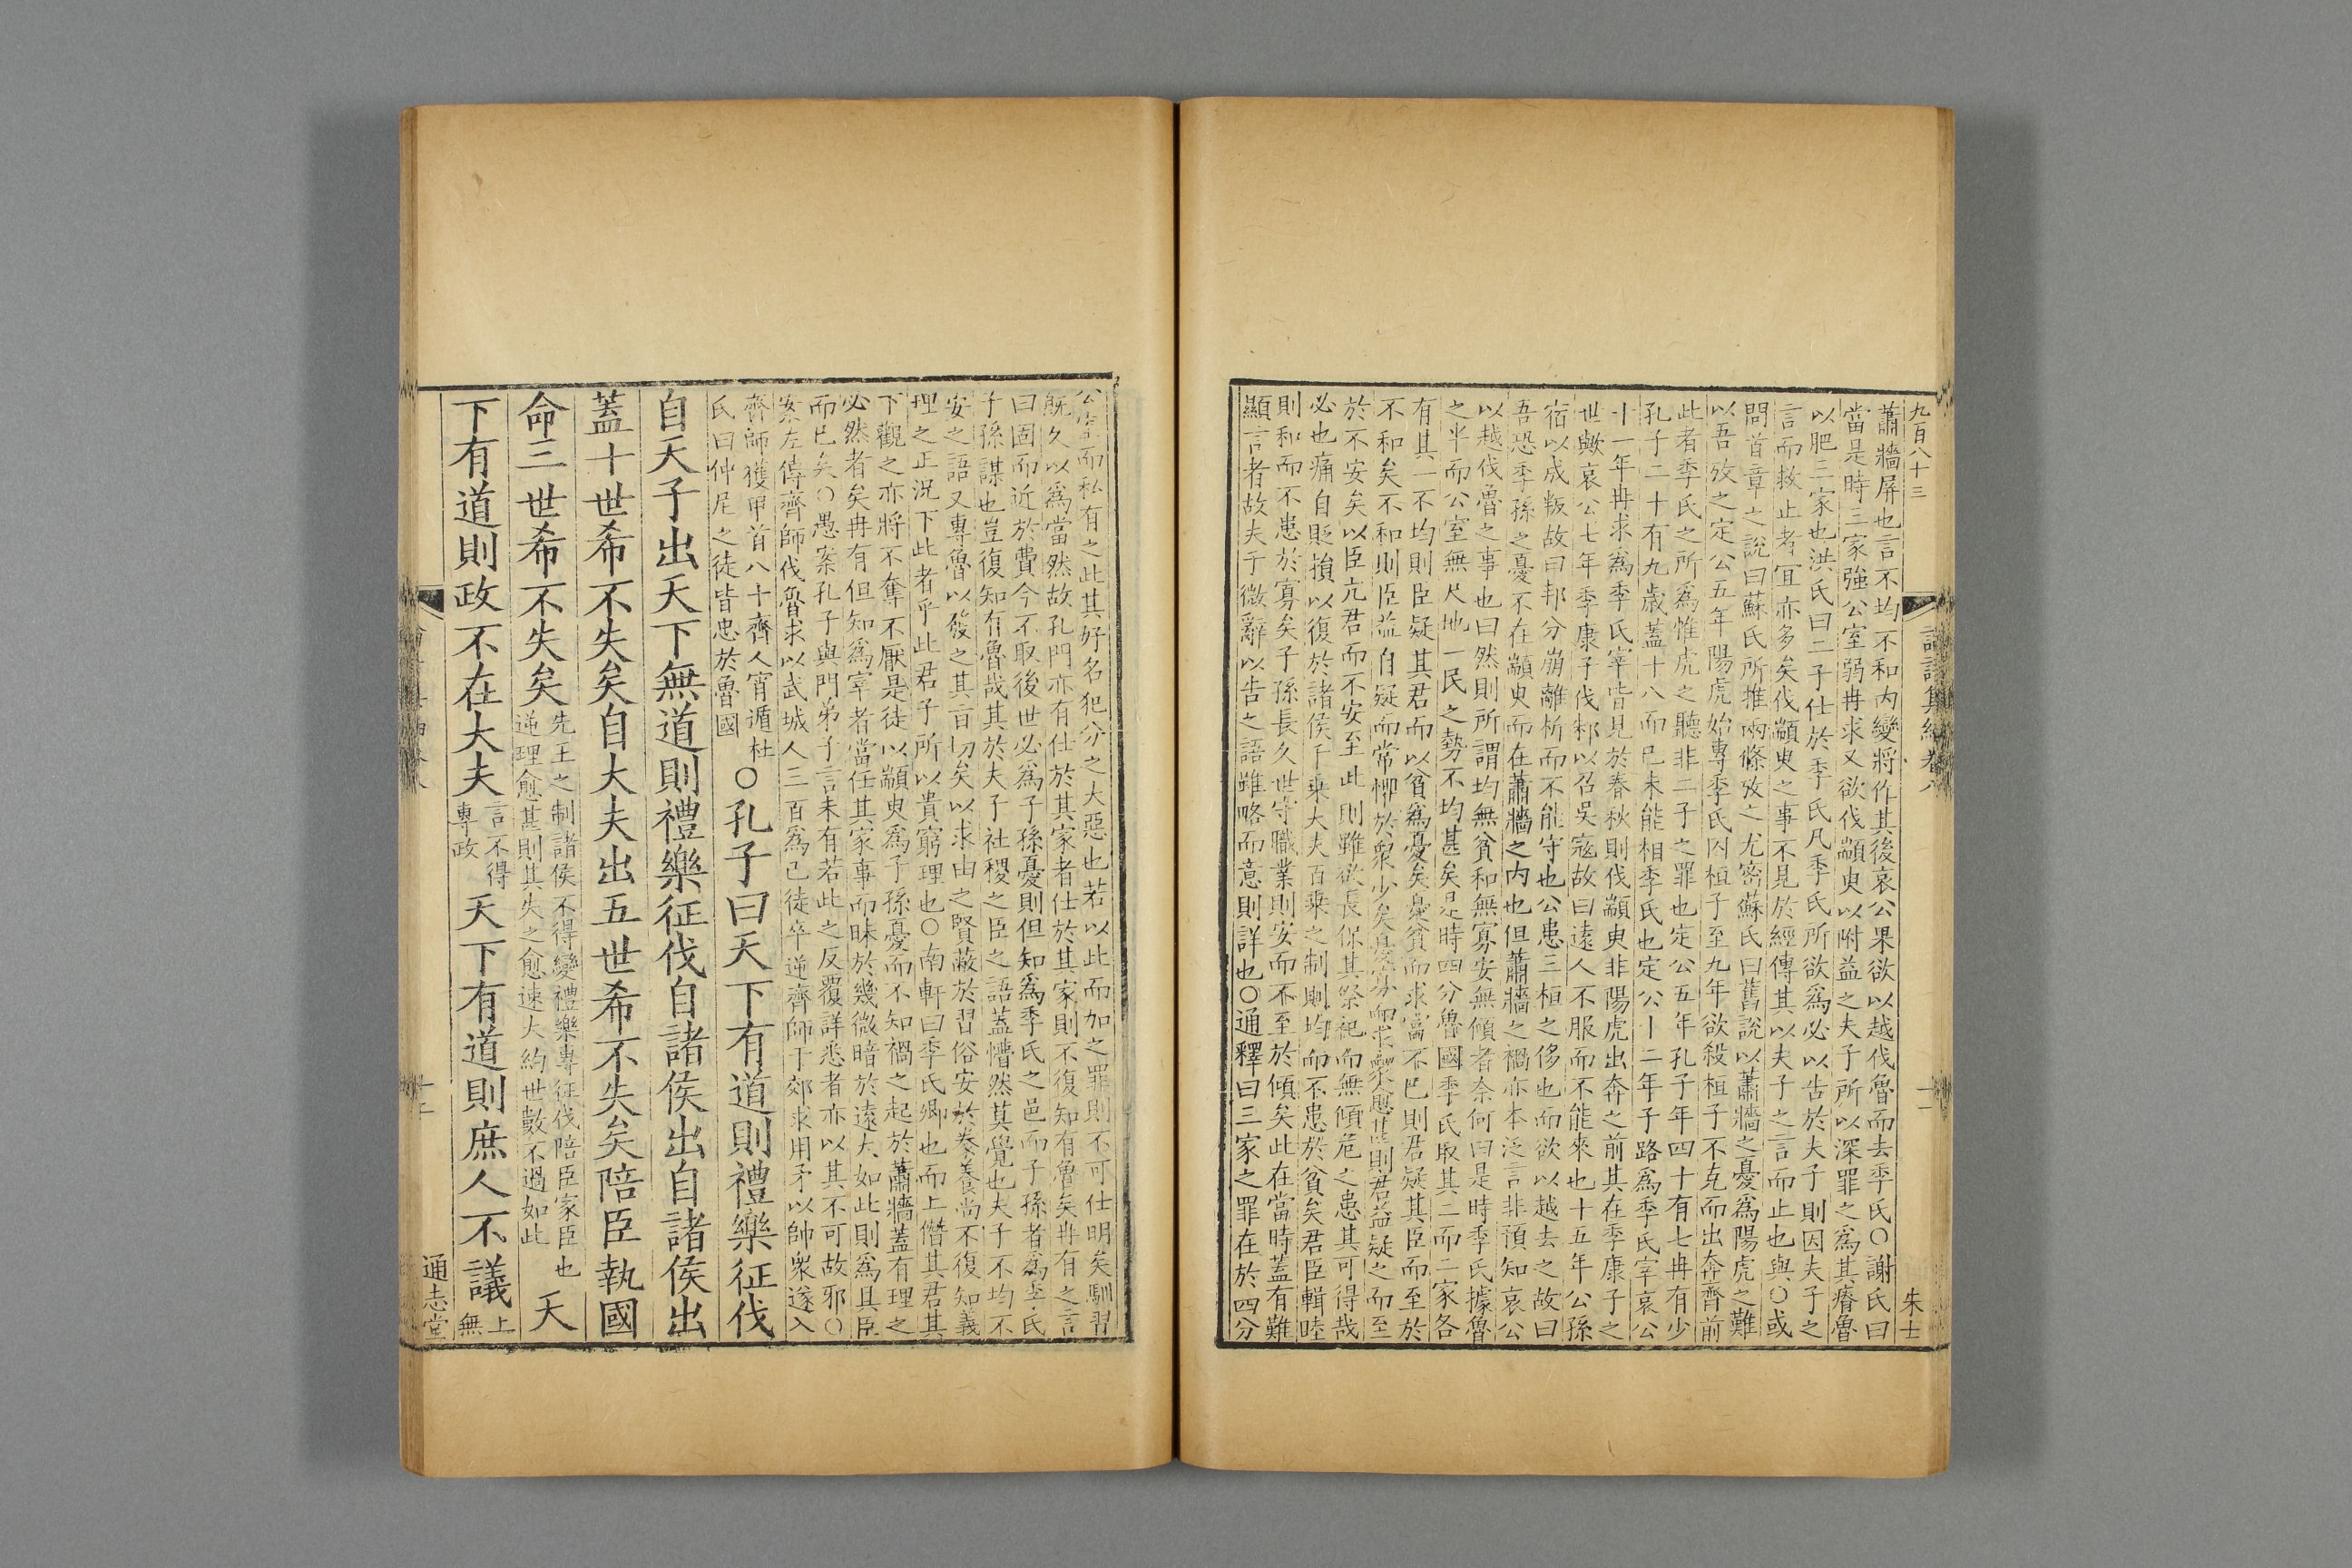 九百八十三
朱士
蕭牆屏也言不均不和內變將作其後哀公果欲以越伐魯而去季氏○謝氏曰
當是時三家強公室弱冉求又欲伐顓臾以附益之夫子所以深罪之爲其瘠魯
以肥三家也洪氏曰二子仕於季氏凡季氏所欲爲必以告於夫子則因夫子之
言而救止者宜亦多矣伐顓臾之事不見於經傳其以夫子之言而止也與○或
問首章之說曰蘇氏所推兩條攷之尤密蘇氏曰舊說以蕭牆之憂爲陽虎之難
以吾攷之定公五年陽虎始專季氏囚桓子至九年欲殺桓子不克而出奔齊前
此者季氏之所爲惟虎之聽非二子之罪也定公五年孔子年四十有七冉有少
孔子二十有九歲蓋十八而已未能相季氏也定公十二年子路爲季氏宰哀公
十一年冉求爲季氏宰皆見於春秋則伐顓臾非陽虎出奔之前其在季康子之
世歟哀公七年季康子伐邾以召吳寇故曰遠人不服而不能來也十五年公孫
宿以成叛故曰邦分崩離析而不能守也公患三桓之侈也而欲以越去之故曰
吾恐季孫之憂不在顓臾而在蕭牆之內也但蕭牆之禍亦本泛言非預知哀公
以越伐魯之事也曰然則所謂均無貧和無寡安無傾者奈何曰是時季氏據魯
之半而公室無尺地一民之勢不均甚矣是時四分魯國季氏取其二而二家各
有其一不均則臣疑其君而以貧爲憂矣憂貧而求富不已則君疑其臣而至於
不和矣不和則臣益自疑而常憂於衆少矣憂少而求衆愈甚則君益疑之而至
於不安矣以臣亢君而不安至此則雖欲長保其祭祀而無傾危之患其可得哉
必也痛自貶損以復於諸侯千乘大夫百乘之制則均而不患於貧矣君臣輯睦
則和而不患於寡矣子孫長久世守職業則安而不至於傾矣此在當時蓋有難
顯言者故夫子微辭以告之語雖略而意則詳也○通釋曰三家之罪在於四分
公室而私有之此其好名犯分之大惡也若以此而加之罪則不可仕明矣馴習
旣久以爲當然故孔門亦有仕於其家者仕於其家則不復知有魯矣冉有之言
曰固而近於費今不取後世必爲子孫憂則但知爲季氏之邑而子孫者爲季氏
子孫謀也豈復知有魯哉其於夫子社稷之臣之語蓋懵然莫覺也夫子不均不
安之語又專魯以發之其言切矣以求由之賢蔽於習俗安於豢養尚不復知義
理之正況下此者乎此君子所以貴窮理也○南軒曰季氏卿也而上僭其君其
下觀之亦將不奪不厭是徒以顓臾爲子孫憂而不知禍之起於蕭牆蓋有理之
必然者矣冉有但知爲宰者當任其家事而昧於幾微暗於遠大如此則爲具臣
而已矣○愚案孔子與門弟子言未有若此之反覆詳悉者亦以其不可故邪○
案左傳齊師伐魯求以武城人三百爲己徒卒逆齊師于郊求用矛以帥衆遂入
齊師獲甲首八十齊人宵遁杜
氏曰仲尼之徒皆忠於魯國
○孔子曰天下有道則禮樂征伐
自天子出天下無道則禮樂征伐自諸侯出自諸侯出
蓋十世希不失矣自大夫出五世希不失矣陪臣執國
命三世希不失矣
先王之制諸侯不得變禮樂專征伐陪臣家臣也
逆理愈甚則其失之愈速大約世數不過如此
天
下有道則政不在大夫
言不得
專政
天下有道則庶人不議
上
無
通志堂